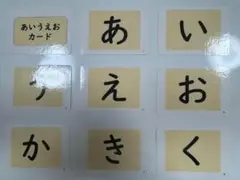 あいうえお
カード
あ い
う え お
か き く